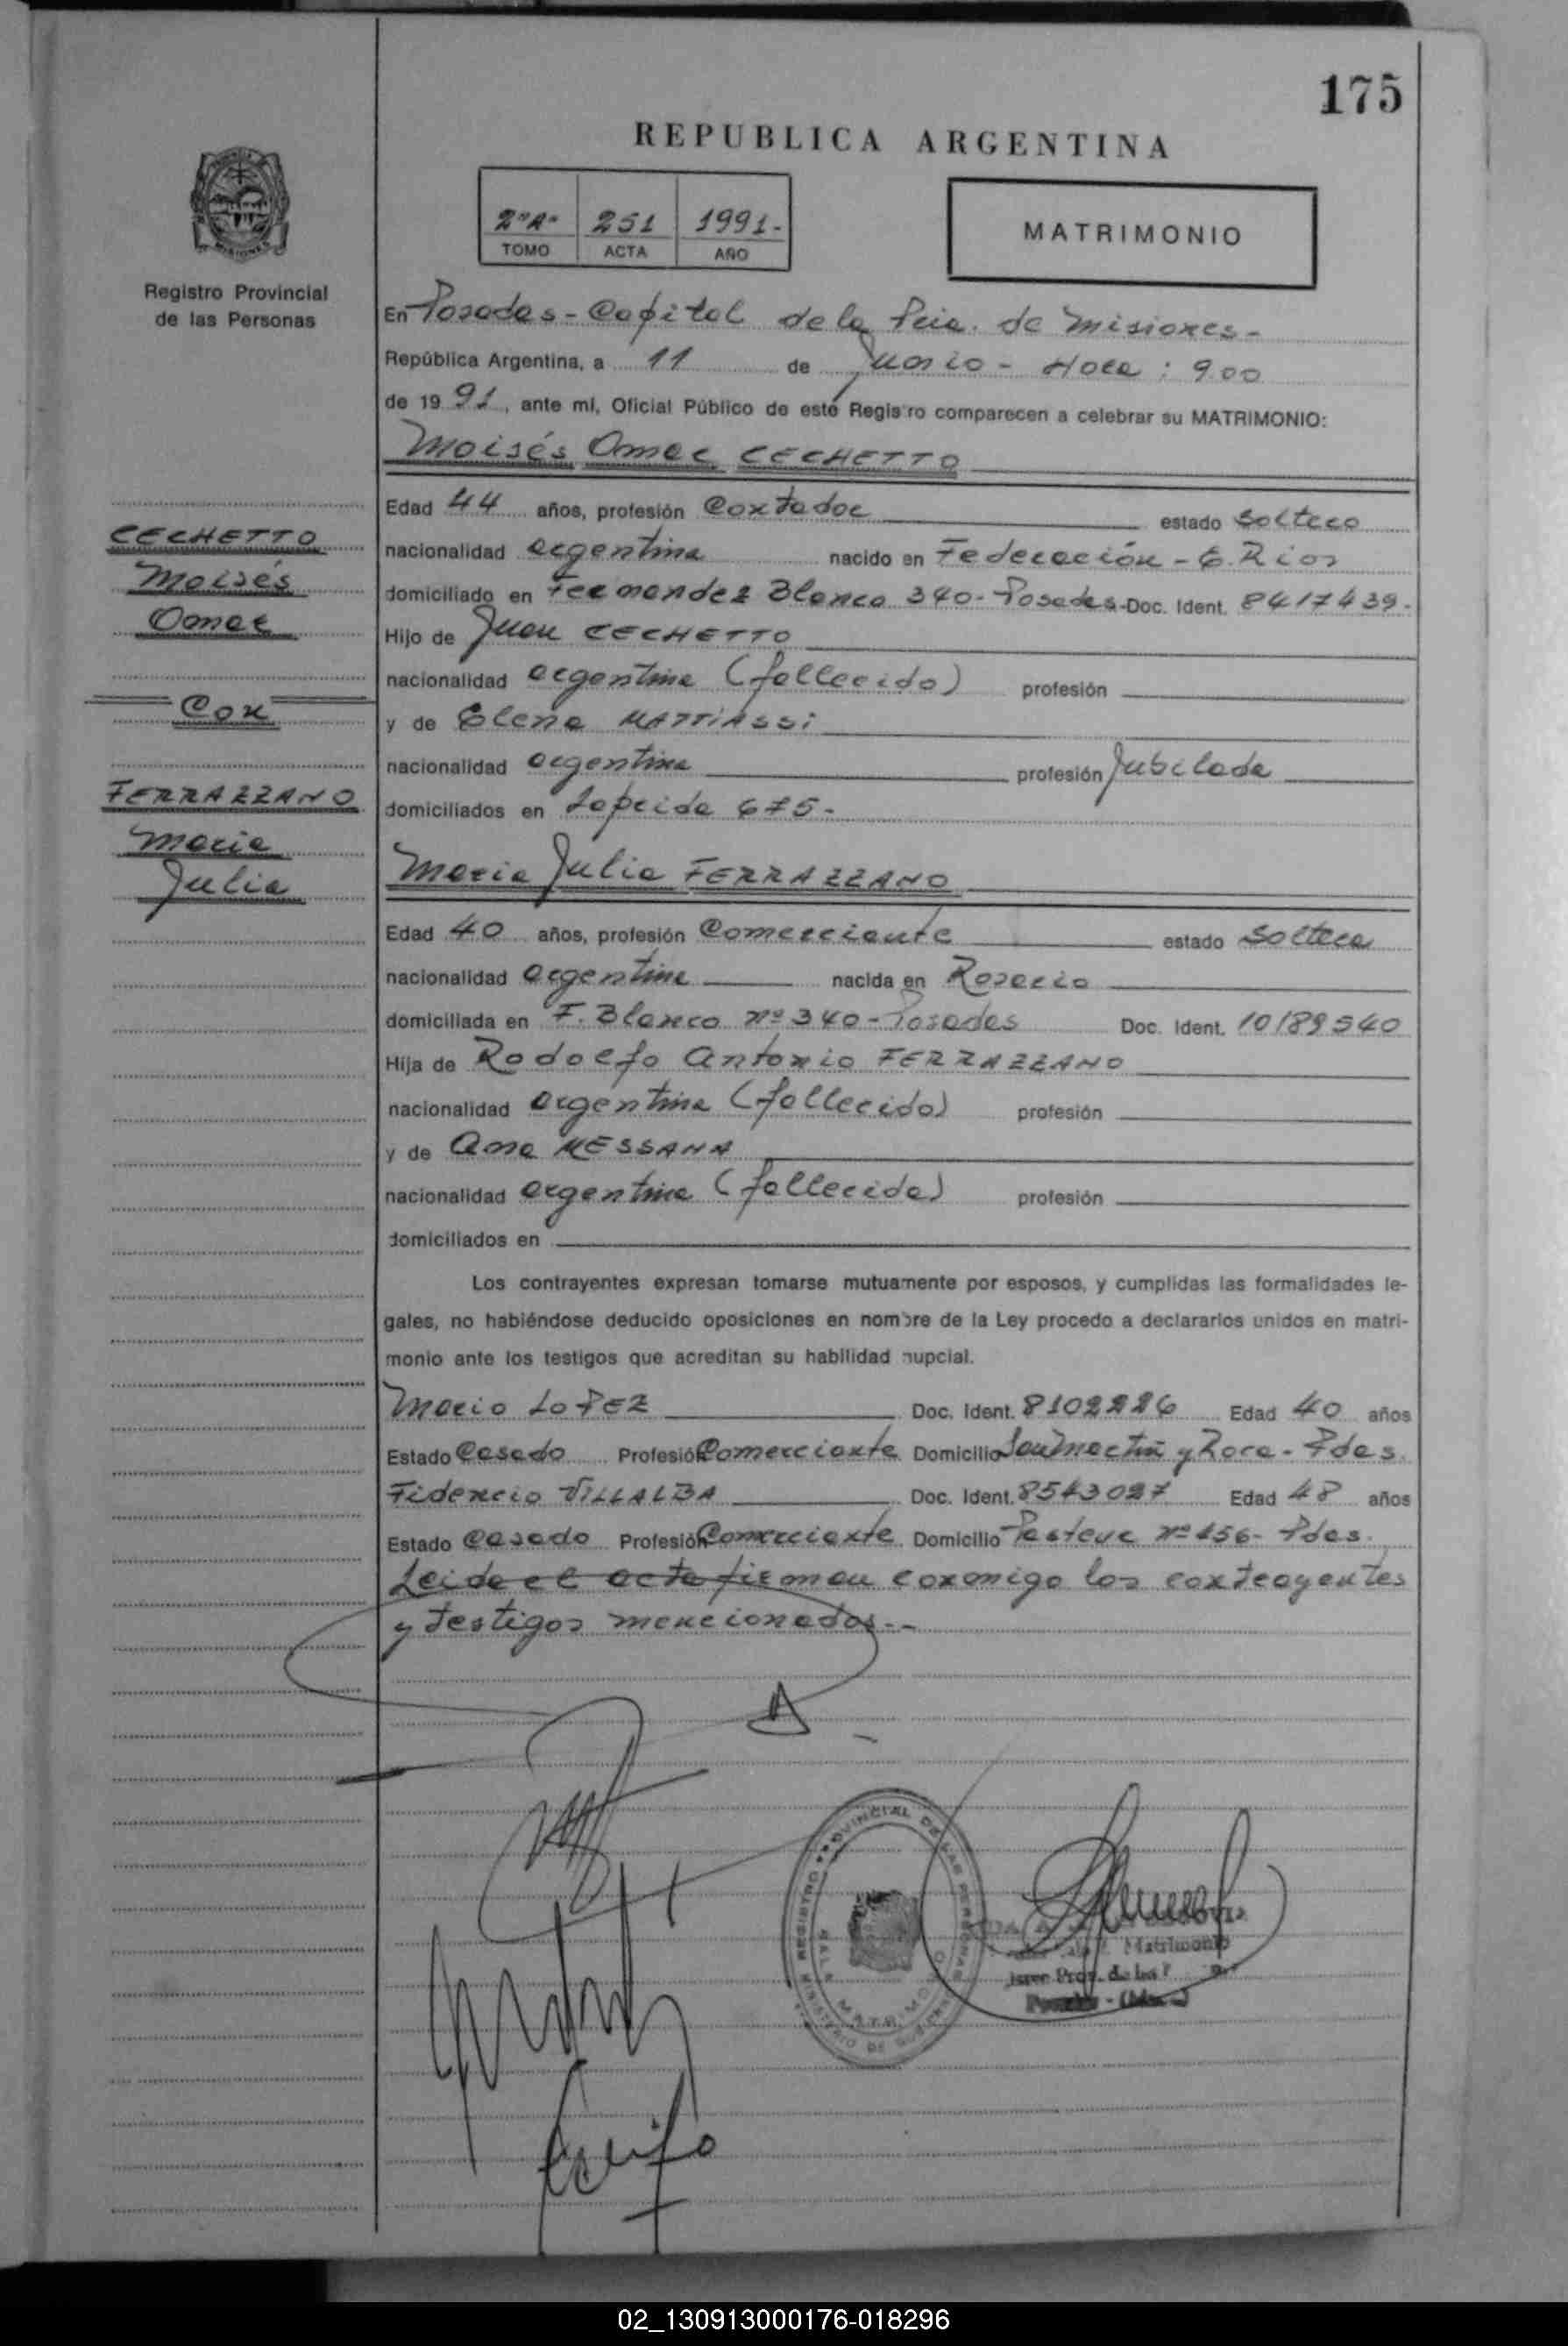 175
REPUBLICA ARGENTINA
2º"A"
251
1991-
TOMO
ACTA
AÑO
MATRIMONIO
MISIONES
Registro Provincial
de las Personas
En Posadas - Capital de la Pcia. de Misiones -
República Argentina, a 11 de Junio - Hora : 9.00
de 19 91, ante mí, Oficial Público de este Registro comparecen a celebrar su MATRIMONIO:
Moisés Omar CECHETTO
Edad 44 años, profesión Contador estado Soltero
nacionalidad argentina nacido en Federación - E. Rios
domiciliado en Fernandez Blanco 340 - Posadas - Doc. Ident. 8417439.
Hijo de Juan CECHETTO
nacionalidad argentina (fallecido) profesión
y de Elena MATTIASSI
nacionalidad argentina profesión Jubilada
domiciliados en Laprida 675 -
CECHETTO
Moisés
Omar
Con
FERRAZZANO
Maria
Julia
Maria Julia FERRAZZANO
Edad 40 años, profesión Comerciante estado Soltera
nacionalidad argentina nacida en Rosario
domiciliada en F. Blanco nº 340 - Posadas Doc. Ident. 10189540
Hija de Rodolfo Antonio FERRAZZANO
nacionalidad argentina (fallecido) profesión
y de Ana MESSANA
nacionalidad argentina (fallecida) profesión
domiciliados en
Los contrayentes expresan tomarse mutuamente por esposos, y cumplidas las formalidades le-
gales, no habiéndose deducido oposiciones en nombre de la Ley procedo a declararlos unidos en matri-
monio ante los testigos que acreditan su habilidad nupcial.
Mario LOPEZ Doc. Ident. 8102226 Edad 40 años
Estado Casado Profesión Comerciante Domicilio San Martin y Roca - Pdas.
Fidencio VILLALBA Doc. Ident. 8543027 Edad 48 años
Estado Casado Profesión Comerciante Domicilio Pasteur nº 156 - Pdas.
Leida el acta firman conmigo los contrayentes
y testigos mencionados.-
REGISTRO PROVINCIAL DE LAS PERSONAS
MINISTERIO DE GOBIERNO
MATRIMONIO
Matrimonio
Prov. de las P
02_130913000176-018296